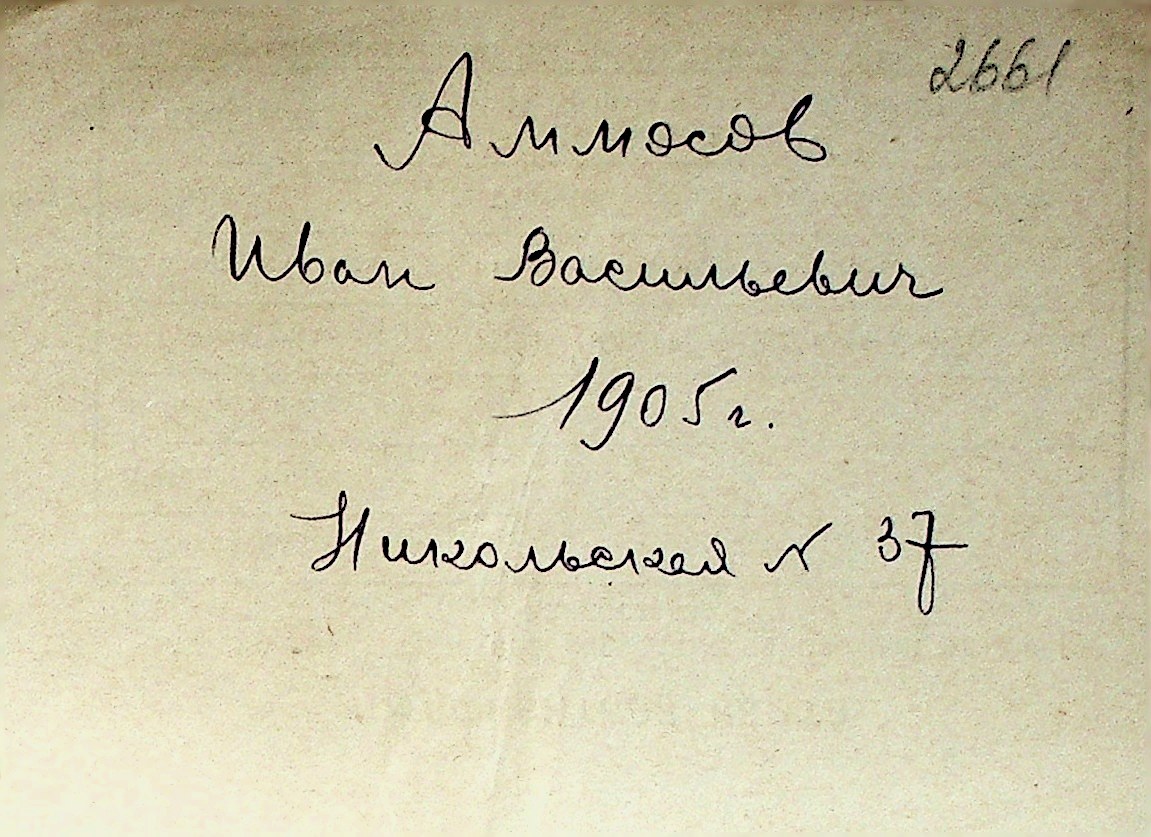 2661
Аммосов
Иван Васильевич
1905 г.
Никольская № 37